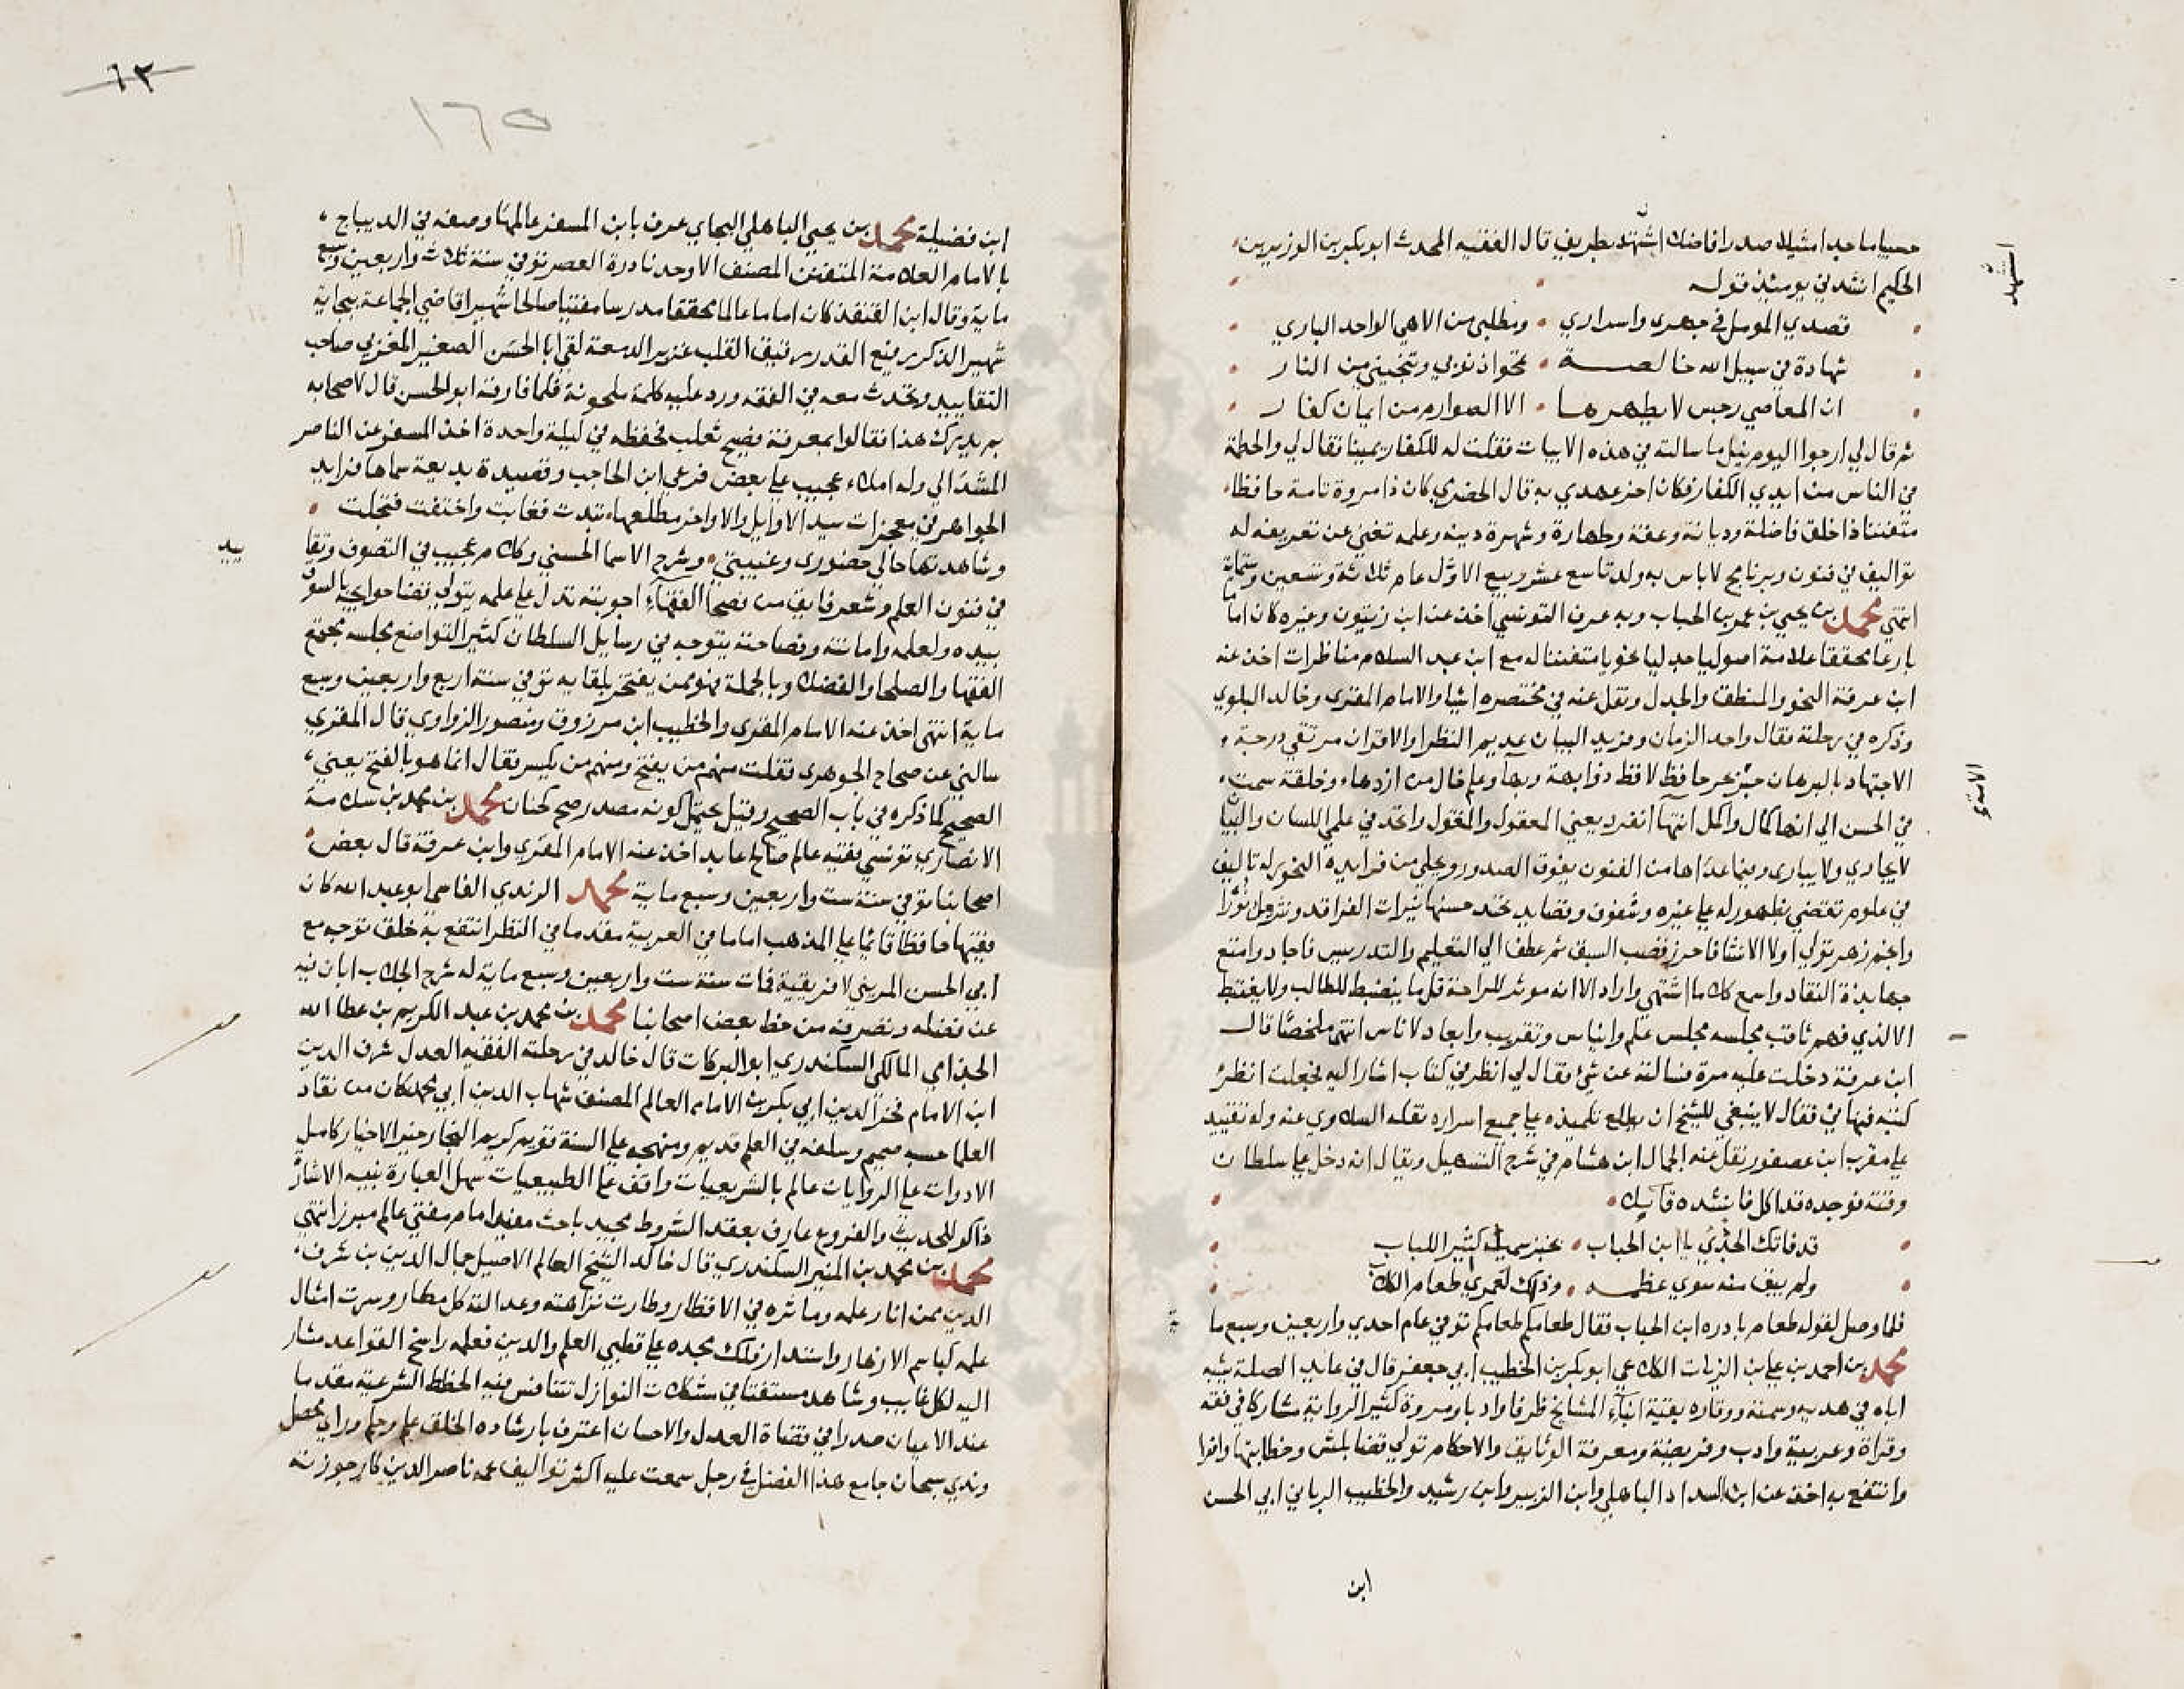 حسيبا ماجدا مشيلا صدرا فاضلا استشهد بطريف قال الفقيه المحدث ابو بكر بن الوزير بن
الحكيم انشدني يومئذ قوله
قصدي المومل في جهري واسراري ومطلبي من الاهي الواحد الباري
شهادة في سبيل الله خالصة تمحوا ذنوبي وتنجيني من النار
ان المعاصي رجس لا يطهرها الا الصوارم من ايمان كفار
ثم قال لي ارجوا اليوم نيل ما سالته في هذه الابيات فقلت له للكفار يمينا فقال لي والحطة
في الناس من ايدي الكفار فكان اخر عهدي به قال الحضري كان ذا مروة تامة حافظا
متفننا ذا خلق فاضلة وديانة وعفة وطهارة وشهرة دينه وعلمه تغني عن تعريفه له
تواليف في فنون وبرنامج لا باس به ولد تاسع عشر ربيع الاول عام ثلاثة وتسعين وستماية
انتهي محمد بن يحيي بن عمر بن الحباب وبه عرف التونسي اخذ عن ابن زيتون وغيره كان اماما
بارعا محققا علامة اصوليا جدليا نحويا متفننا له مع ابن عبد السلام مناظرات اخذ عنه
ابن عرفة النحو والمنطق والجدل ونقل عنه في مختصره اشيا والامام المقري وخالد البلوي
وذكره في رحلته فقال واحد الزمان وفريد البيان عديم النظرا والاقران مرتقي درجة
الاجتهاد بالبرهان حبر بحر حافظ لافظ ذو ابهة وبها وعلم خال من ازدهاء وخلقة سمت
في الحسن الي انها كمال واكمل انتها انفرد يعني المعقول والمنقول واتحد في علمي اللسان والبيان
لا يجاري ولا يباري وفيما عداها من الفنون يفوق الصدور ويحلي من فرايده النحور له تاليف
في علوم تقتضي بظهور له علي غيره وشفوف وقصايد تحسد حسنها نيرات الفراقد ونثر
وانجم زهر تولي اولا الانشا فاحرز قصب السبق ثم عطف الي التعليم والتدريس فاجاد وامتع
جهابذة النقاد واسمع كل ما اشتهي واراد الا انه موثر للراحة قل ما ينضبط للطالب ولا يغتبط
الا لذي فهم ثاقب مجلسه مجلس علم وايناس وتقريب وابعاد لا ناس انتهي ملخصا قال
ابن عرفة دخلت عليه مرة فسالته عن شئ فقال لي انظر في كتاب اشار اليه فجعلت انظر
كتبه فنهاني فقال لا ينبغي للشيخ ان يطلع تلميذه علي جميع اسراره نقله السلاوي عنه وله تقييد
علي مقرب ابن عصفور نقل عنه الجمال ابن هشام في شرح التسهيل ويقال انه دخل علي سلطان
وقته فوجده قد اكل فانشده قايلا
قد فاتك الجدي يا ابن الحباب بخبز سميد كثير اللباب
ولم يبق منه سوي عظمه وذلك لعمري طعام الكلاب
فلما وصل لقوله طعام بادره ابن الحباب فقال طعامكم طعامكم توفي عام احدي واربعين وسبع ماية
محمد بن احمد بن علي بن الزيات الكلاعي ابو بكر بن الخطيب ابي جعفر قال في عايد الصلة شبه
اباه في هديه وسمته ووقاره بقية ابناء المشايخ ظرفا وادبا ومروة كثير الرواية مشاركا في فقه
وقراة وعربية وادب وفريضة ومعرفة الوثايق والاحكام تولي قضا بلمش وخطابتها واقرا
وانتفع به اخذ عن ابن السداد الباهلي وابن الزبير وابن رشيد والخطيب الرباني ابي الحسن
ابن
استشهد
٦٣
١٦٥
ابن فضيلة محمد بن يحيي الباهلي البجاي عرف بابن المسفر عالمها وصفه في الديباج
بالامام العلامة المتفنن المصنف الاوحد نادرة العصر توفي سنة ثلاث واربعين وسبع
ماية وقال ابن القنفذ كان اماما عالما محققا مدرسا مفتيا صالحا شهيرا قاضي الجماعة ببجاية
شهير الذكر رفيع القدر رقيق القلب غزير الدمعة لقي ابا الحسن الصغير المغربي صاحب
التقاييد وتحدث معه في الفقه ورد عليه كلمة ملحونة فلما فارقه ابو الحسن قال لاصحابه
بم يدرك هذا فقالوا بمعرفة فصيح ثعلب فحفظه في ليلة واحدة اخذ المسفر عن الناصر
المشدالي وله املاء عجيب علي بعض فرعي ابن الحاجب وقصيدة بديعة سماها فرايد
الجواهر في معجزات سيد الاوايل والاواخر مطلعها بدت فغابت واختفت فتجلت
وشاهدتها حالي حضوري وغيبتي وشرح الاسما الحسني وكلام عجيب في التصوف وتقاييد
في فنون العلم وشعر فايق من فصحا الفقهاء اجوبته تدل علي علمه يتولي قضا حوايجه بالسوق
بيده ولعلمه وامانته وفصاحته يتوجه في رسايل السلطان كثير التواضع مجلسه يجمع
الفقها والصلحا والفضلا وبالجملة فهو ممن يفتخر بلقايه توفي سنة اربع واربعين وسبع
ماية انتهي اخذ عنه الامام المقري والخطيب ابن مرزوق ومنصور الزواوي قال المقري
سالني عن صحاح الجوهري فقلت منهم من يفتح ومنهم من يكسر فقال انما هو بالفتح يعني
الصحيح كما ذكره في باب الصحيح وقيل يحتمل كونه مصدر صح كحنان محمد بن محمد بن سلامة
الانصاري تونسي فقيه عالم صالح عابد اخذ عنه الامام المقري وابن عرفة قال بعض
اصحابنا توفي سنة ست واربعين وسبع ماية محمد الرندي الفاسي ابو عبد الله كان
فقيها حافظا قايما علي المذهب اماما في العربية مقدما في النظر انتفع به خلق توجه مع
ابي الحسن المريني لافريقية فمات سنة ست واربعين وسبع ماية له شرح الجلاب ابان فيه
عن فضله وتصرفه من خط بعض اصحابنا محمد بن محمد بن عبد الكريم بن عطا الله
الجذامي المالكي السكندري ابو البركات قال خالد في رحلته الفقيه العدل شرف الدين
ابن الامام فخر الدين ابي بكر بن الامام العالم المصنف شهاب الدين ابي محمد كان من نقاد
العلما حسبه صميم وسلفه في العلم قديم ومنهجه علي السنة قويم كريم النجار حبر الاخيار كامل
الادوات علي الروايات عالم بالشرعيات واقف علي الطبيعيات سهل العبارة نبيه الاشارة
ذاكر للحديث والفروع عارف بعقد الشروط مجيد باحث مفيد امام مفتي عالم مبرز انتهي
محمد بن محمد بن المنير السكندري قال خالد الشيخ العالم الاصيل جمال الدين بن شرف
الدين ممن انار علمه وماثره في الاقطار وطارت نزاهته وعدالته كل مطار وسرت امثال
علمه كباسم الازهار واستدار فلك مجده علي قطبي العلم والدين فعلمه راسخ القواعد مشار
اليه لكل غايب وشاهد مستفتا في مشكلات النوازل تتنافس فيه الخطط الشرعية مقدما
عند الاعيان صدرا في قضاة العدل والاحسان اعترف بارشاده الخلق علم وحلم وراي محصل
وندي سبحان جامع هذا الفضل في رجل سمعت عليه اكثر تواليف عمه ناصر الدين كارجوزته